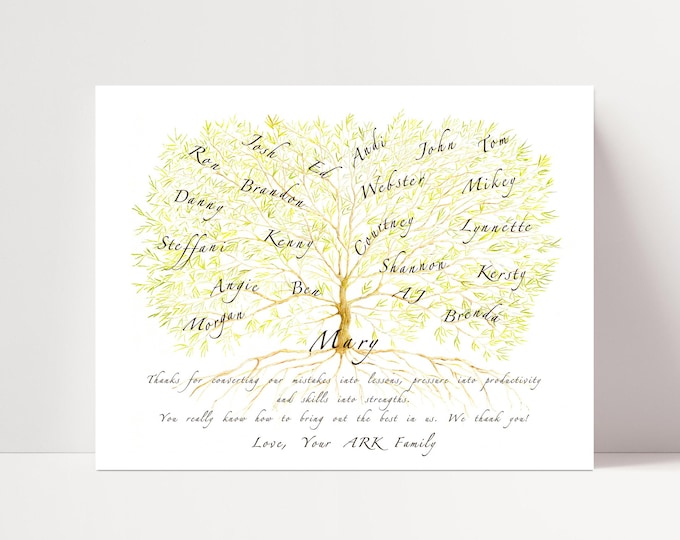 Josh
Ed
Andi
John
Tom
Ron
Brandon
Webster
Mikey
Danny
Courtney
Lynnette
Steffani
Kenny
Shannon
Kersty
Angie
Ben
AJ
Morgan
Brenda
Mary
Thanks for converting our mistakes into lessons, pressure into productivity
and skills into strengths.
You really know how to bring out the best in us. We thank you!
Love, Your ARK Family